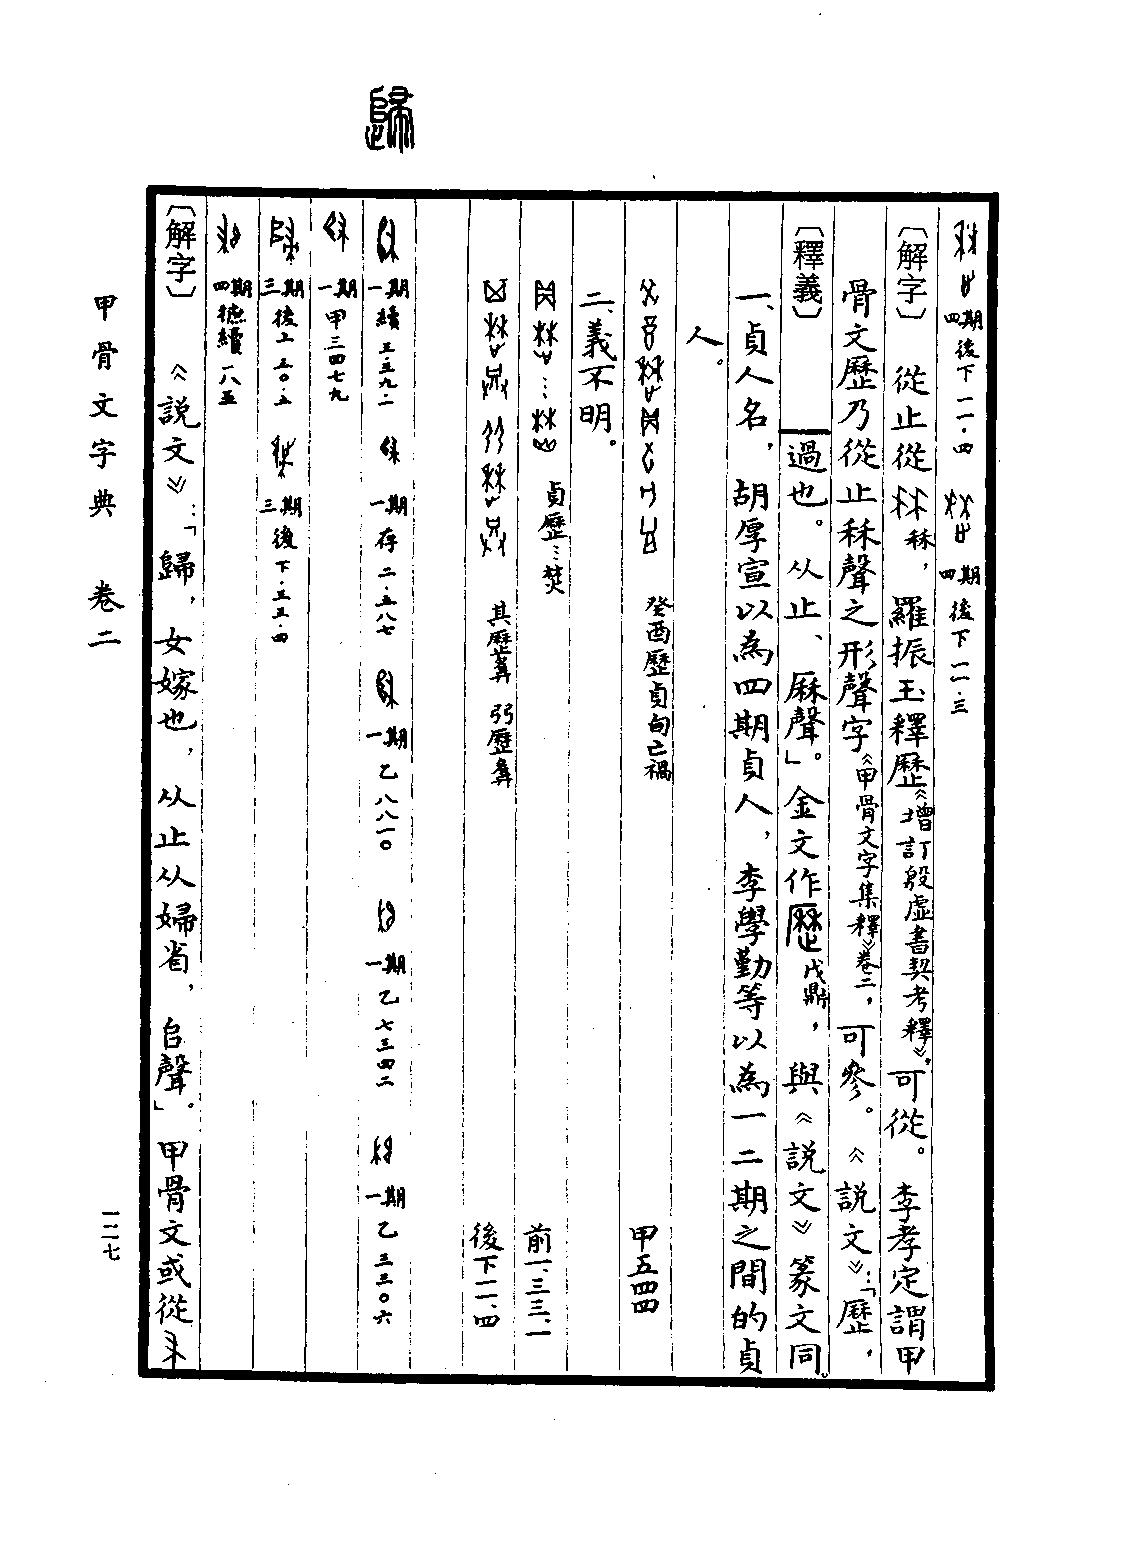 歸
四期後下一一·四 四期後下一一·三
〔解字〕從止從秝,羅振玉釋歷《增訂殷虛書契考釋》,可從。李孝定謂甲
骨文歷乃從止秝聲之形聲字《甲骨文字集釋》卷二,可參。《說文》:「歷,
過也。从止、厤聲」。金文作歷戊鼎,與《說文》篆文同。
〔釋義〕
一、貞人名,胡厚宣以為四期貞人,李學勤等以為一二期之間的貞
人。
癸酉歷貞旬亡禍 甲五四四
二、義不明。
貞歷…焚 前一·三三·一
其歷 弜歷 後下一一·四
一期續五·五九·一 一期存二·五八七 一期乙八八一〇 一期乙七三四二 一期乙三三〇六
一期甲三四七九
三期後上三〇·五 三期後下·三三·四
四期摭續一八五
〔解字〕《說文》:「歸,女嫁也,从止从婦省,𠂤聲」。甲骨文或從
甲骨文字典 卷二
一二七